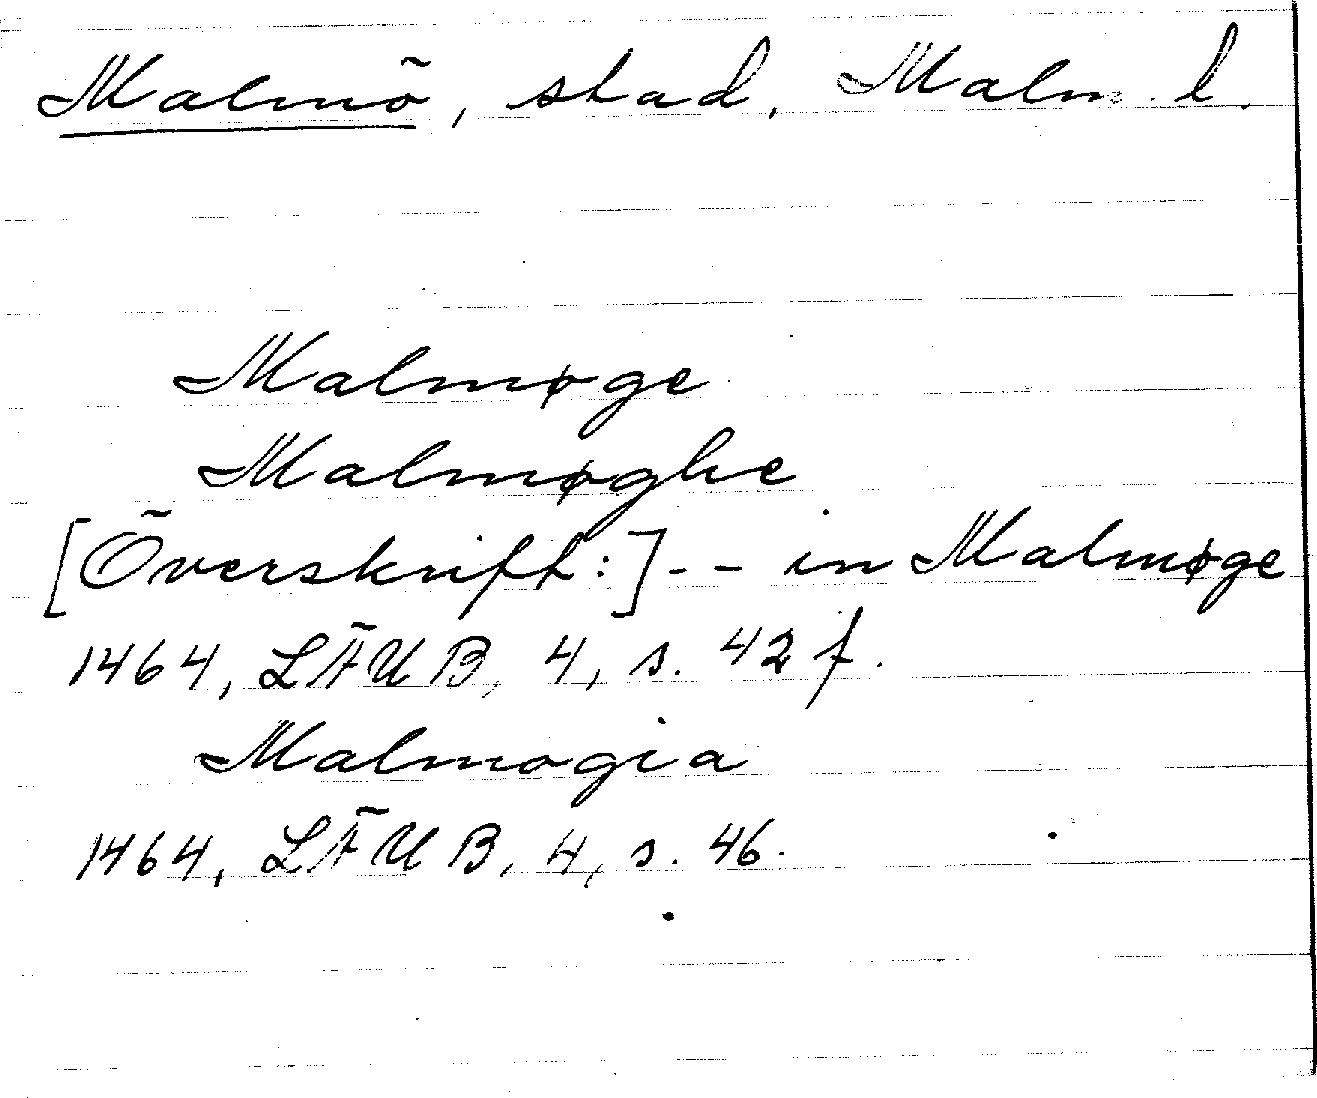 Malmö, stad, Malm. l.
Malmøge
Malmøghe
[Överskrift:] - - in Malmøge
1464, LÄUB, 4, s. 42 f.
Malmogia
1464, LÄUB, 4, s. 46.